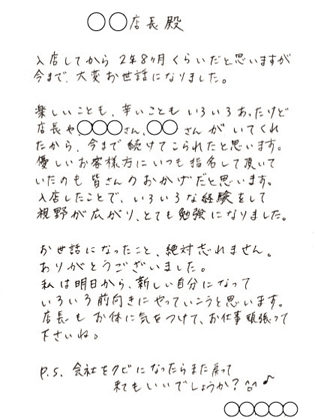 ○○店長殿
入店してから2年8ヶ月くらいだと思いますが
今まで、大変お世話になりました。
楽しいことも、辛いこともいろいろあったけど
店長や○○○さん、○○さんがいてくれ
たから、今まで続けてこられたと思います。
優しいお客様方にいつも指名して頂いて
いたのも皆さんのおかげだと思います。
入店したことで、いろいろな経験をして
視野が広がり、とても勉強になりました。
お世話になったこと、絶対忘れません。
ありがとうございました。
私は明日から、新しい自分になって
いろいろ前向きにやっていこうと思います。
店長もお体に気をつけて、お仕事頑張って
下さいね。
P.S. 会社をクビになったらまた戻って
来てもいいでしょうか?^^♪
○○○○○